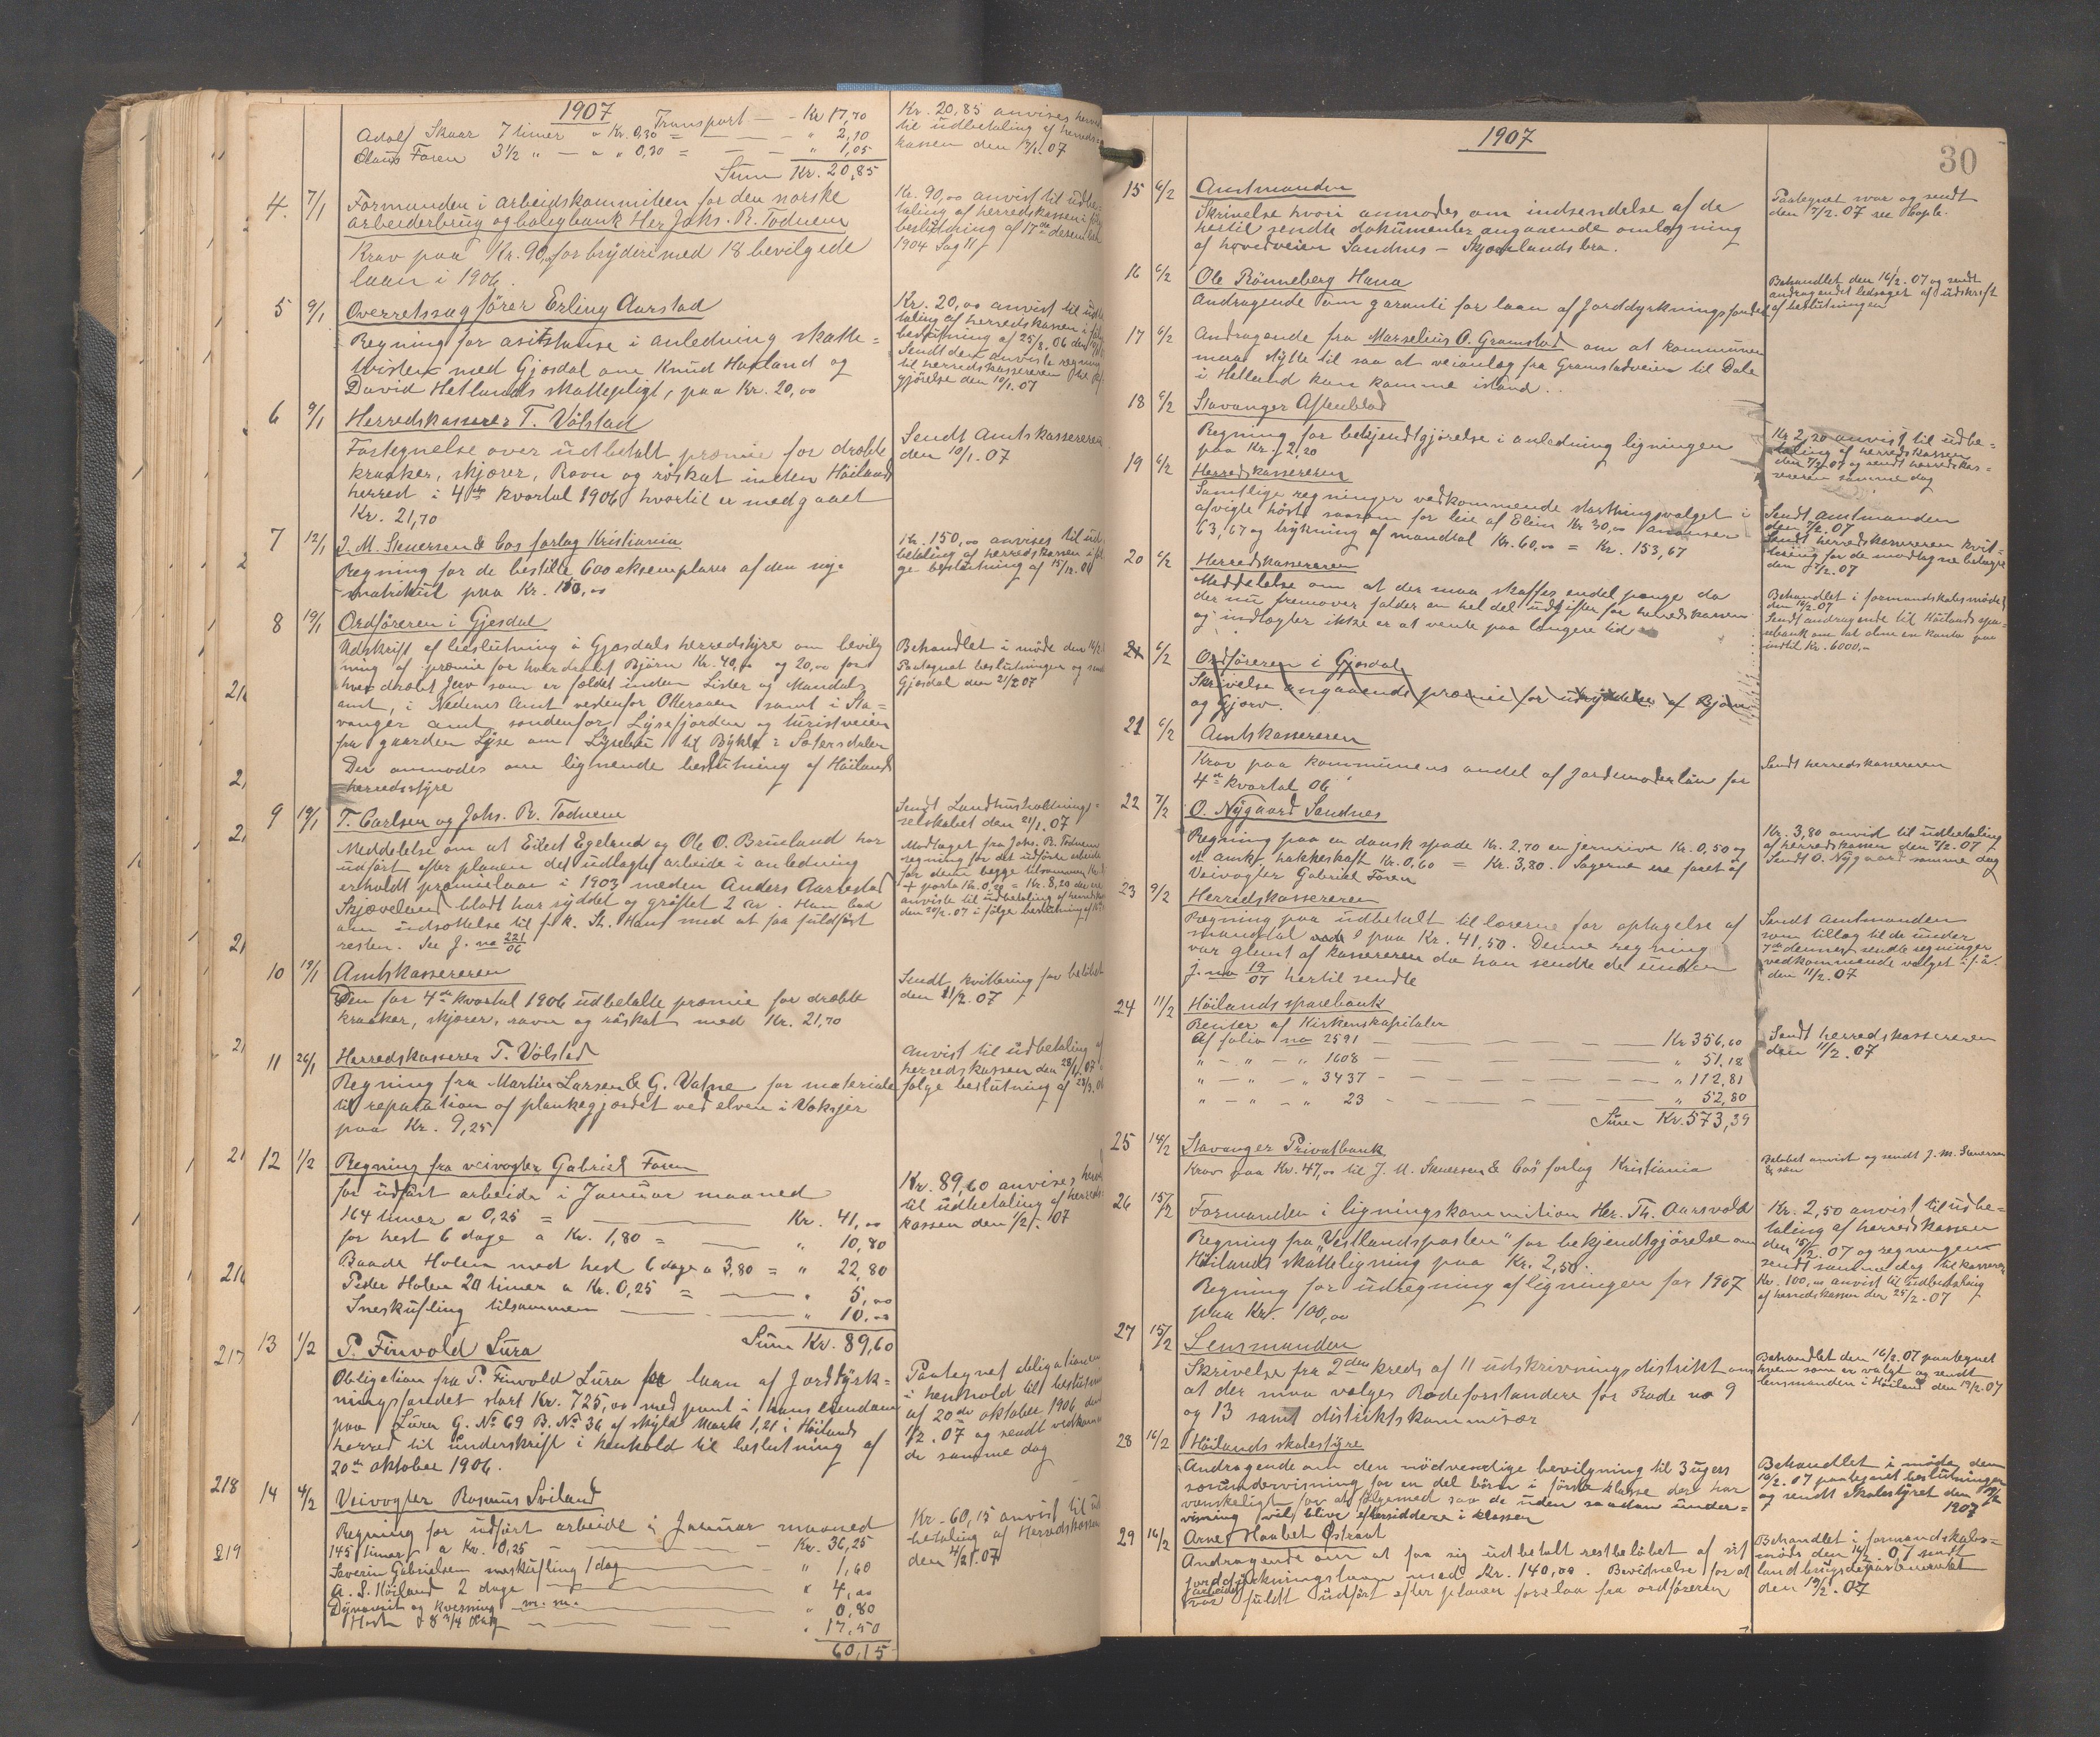 1907
Transport — - Kr 17,70
Adolf Skaar 7 timer a Kr. 0,30 = — - " 2,10
Claus Foren 3 1/2 " — a " 0,30 = — - " 1,05
Sum Kr. 20,85
Kr. 20,85 anvises
til udbetaling af
kassen den /1. 07
4. 7/1 Formanden i arbeidskommiteen for den norske
arbeiderbrug og boligbank Her Johs. R. Todnem
Krav paa Kr. 90,00 for bryderi med 18 bevilgede
laan i 1906.
Kr. 90,00 anvist til udbe-
taling af herredskassen i
beslutning af 17de desember
1904 Sag 11
5 9/1 Overretssagfører Erling Aarstad
Regning for asistanse i anledning skatte=
tvisten med Gjesdal om Knud Haaland og
David Hetlands skattepligt, paa Kr. 20,00
Kr. 20,00 anvist til
taling af herredskassen i
beslutning af 25/8. 06 den
Sendt den anviste regning
til herredskassereren
gjørelse den 10/1. 07
6 9/1 Herredskasserer T. Vølstad
Fortegnelse over udbetalt præmie for dræbte
kraaker, skjærer, Ravn og røskat inden Höilands
herred i 4de kvartal 1906 hvortil er medgaaet
Kr. 21,70
Sendt Amtskassereren
den 10/1. 07
7 12/1 J. M. Stenersen & Cos forlag Kristiania
Regning for de bestilte 600 eksemplarer af den nye
matrikul paa Kr. 150,00
Kr. 150,00 anvises til ud
betaling af herredskassen i
ge beslutning af 15/12. 06
8 19/1 Ordføreren i Gjesdal
Udskrift af beslutning i Gjesdals herredstyre om bevilg
ning af præmie for hver dræbt Bjørn Kr. 40,00 og 20,00 for
hver dræbt Jerv som er fældet inden Lister og Mandals
amt, i Nedenes Amt vestenfor Otteraaen samt i Sta=
vanger amt søndenfor Lysefjorden og turistveien
fra gaarden Lyse om Lyseheien til Bykle i Sætersdalen
Der anmodes om lignende beslutning af Höilands
herredsstyre
Behandlet i møde den 16/2
Paategnet beslutningen og sendt
Gjesdal den 21/2 07
9 19/1 T. Carlsen og Johs. R. Todnem
Meddelelse om at Eilert Egeland og Ole O. Bruland har
udført efter planen det udlagte arbeide i anledning
erholdt præmielaan i 1903 meden Anders Aarrestad
Skjæveland blodt har ryddet og grøftet 2 ar. Han bad
om udsættelse til f. k. St. Hans med at faa fuldført
resten. See J. no 221/06
Sendt Landhusholdnings=
selskabet den 21/1. 07
Modtaget fra Johs. R. Todnem
regning for det udførte arbeide
for dem begge tilsammen Kr.
+ porto Kr. 0,20 = Kr. 8,20
anviste til udbetaling af herredskassen
den 20/2. 07 i følge beslutning af
10 19/1 Amtskassereren
Den for 4de kvartal 1906 udbetalte præmie for dræbte
kraaker, skjærer, ravn og røskat med Kr. 21,70
Sendt kvittering for beløbet
den 11/2. 07
11 26/1 Herredskasserer T. Vølstad
Regning fra Martin Larsen & G. Vatne for materiale
til reparation af plankegjærdet ved elven i Vaksjer
paa Kr. 9,25
Anvist til udbetaling af
herredskassen den 28/1. 07
følge beslutning af 23/3. 06
12 1/2 Regning fra veivogter Gabriel Foren
for udført arbeide i Januar maaned
164 timer a 0,25 = — Kr. 41,00
for hest 6 dage a Kr. 1,80 = — " 10,80
Baade Holen med hest 6 dage a 3,80 = " 22,80
Peder Holen 20 timer a Kr. 0,25 = — " 5,00
Sneskufling tilsammen — " 10,00
Sum Kr. 89,60
Kr. 89,60 anvises
til udbetaling af herreds-
kassen den 1/2. 07
13 1/2 P. Finvold Lura
Obligation fra P. Finvold Lura for laan af Jorddyrk=
ningsfondet stort Kr. 725,00 med pant i hans eiendom
paa Lura G. No 69 B. No 36 af skyld Mark 1,21 i Höilands
herred til underskrift i henhold til beslutning af
20de oktober 1906.
Paategnet obligationen
i henhold til beslutning
af 20de oktober 1906 den
1/2. 07 og sendt vedkommen
de samme dag
14 4/2 Veivogter Rasmus Sviland
Regning for udført arbeide i Januar maaned
145 timer a Kr. 0,25 — Kr. 36,25
Severin Gabrielsen sneskufling 1 dag — " 1,60
A. S. Höiland 2 dage — " 4,00
Dynamit og kvesning m. m. — " 0,80
Hest 8 3/4 dag — " 17,50
60,15
Kr. 60,15 anvist til ud
betaling af Herredskassen
den 4/2. 07
21
2
21
2
2
21
2
21
216
217
218
219
1907
30
15 6/2 Amtmanden
Skrivelse hvori anmodes om indsendelse af de
hertil sendte dokumenter angaaende omlægning
af hovedveien Sandnes — Skjævelandsbro.
Paategnet svar og sendt
den 7/2. 07 see Kopib.
16 6/2 Ole Rönneberg Hana
Andragende om garanti for laan af Jorddyrkningsfondet
Behandlet den 16/2. 07 og sendt
andragendet ledsaget af udskrift
af beslutningen
17 6/2 Andragende fra Marselius O. Gramstad om at kommunen
maa støtte til saa at veianlæg fra Gramstadveien til Dale
i Hetland kan komme istand.
18 6/2 Stavanger Aftenblad
Regning for bekjendtgjørelse i anledning ligningen
paa Kr. 2,20
Kr 2,20 anvist til udbe=
taling af herredskassen
den 7/2. 07 og sendt herredskas=
sereren samme dag
19 6/2 Herredskassereren
Samtlige regninger vedkommende stortingsvalget i
afvigte høst saasom for leie af Elim Kr 30,00 anonser
63,67 og trykning af mandtal Kr. 60,00 = Kr. 153,67
Sendt amtmanden
den 7/2. 07
Sendt herredskassereren kvit=
tering for de modtagne beløb
den /2. 07
20 6/2 Herredskassereren
Meddelelse om at der maa skaffes endel penge da
der nu fremover falder en hel del udgifter for herredskassen
og indtægter ikke er at vente paa længere tid
Behandlet i formandskabsmøde
den 16/2. 07
Sendt andragende til Höilands spa-
rebank om at aabne en konto paa
indtil Kr. 6000,-
21 6/2 Ordføreren i Gjesdal
Skrivelse angaaende præmie for udryddelse af Bjørn
og Gjærv.
21 6/2 Amtskassereren
Krav paa kommunens andel af Jordemoderløn for
4de kvartal 06
Sendt herredskassereren
22 7/2 O. Nygaard Sandnes
Regning paa en dansk spade Kr. 2,70 en jernrive Kr. 0,50 og
et amk. hakkeskaft Kr. 0,60 = Kr. 3,80. Sagerne ere faret af
Veivogter Gabriel Foren
Kr. 3,80 anvist til udbetaling
af herredskassen den 7/2. 07
Sendt O. Nygaard samme dag
23 9/2 Herredskassereren
Regning paa udbetalt til lærerne for optagelse af
mandtal paa Kr. 41,50. Denne regning
var glemt af kassereren da han sendte de under
j. no 19/07 hertil sendte
Sendt Amtmanden
som tillæg til de under
7de dennes sendte regninger
vedkommende valget i f. å.
den 11/2. 07
24 11/2 Höilands sparebank
Renter af Kirkenskapitaler
Af folio no 2591 — Kr 356,60
" — " — " 1608 — " 51,18
" — " — " 3437 — " 112,81
" — " — " 23 — " 52,80
Sum Kr. 573,39
Sendt herredskassereren
den 11/2. 07
25 14/2 Stavanger Privatbank
Krav paa Kr. 47,00 til J. M. Stenersen & Cos forlag Kristiania
Beløbet anvist og sendt J. M. Stenersen
26 15/2 Formanden i ligningskommission Her. Th. Aarsvold
Regning fra "Vestlandsposten" for bekjendtgjørelse om
Höilands skatteligning paa Kr. 2,50.
Regning for udregning af ligningen for 1907
paa Kr. 100,00
Kr. 2,50 anvist til udbe=
taling af herredskassen
den 15/2. 07 og regningen
sendt samme dag til kasserer
Kr. 100,00 anvist til udbetaling
af herredskassen den 25/2. 07
27 15/2 Lensmanden
Skrivelse fra 2den kreds af 11 udskrivningsdistrikt om
at der maa vælges Rodeforstandere for Rode no 9
og 13 samt distriktskommisær
Behandlet den 16/2. 07 paategnet
hvem som er valgt og sendt
lensmanden i Höiland den 19/2. 07
28 16/2 Höilands skolestyre
Andragende om den nødvendige bevilgning til 3 ugers
særundervisning for en del börn i første klasse der har
vanskeligt for at følge med saa de uden saadan under=
visning vil blive eftersiddere i klassen
Behandlet i møde den
16/2. 07 paategnet beslutningen
og sendt skolestyret den 19/2
1907
29 16/2 Arne Haabet Østraat
Andragende om at faa sig udbetalt restbeløbet af sit
jorddyrkningslaan med Kr. 140,00. Bevidnelse for at
arbeidet var fuldt udført efter planen forelaa fra ordføreren
Behandlet i formandskabs=
møde den 16/2. 07 sendt
landbrugsdepartementet
den 19/2. 07